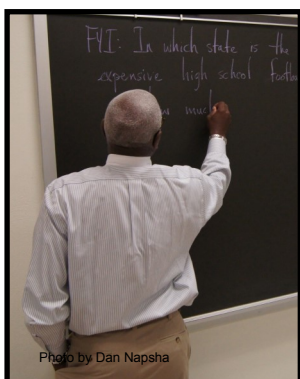 FYI: In which state is the
expensive high school footba
much
Photo by Dan Napsha